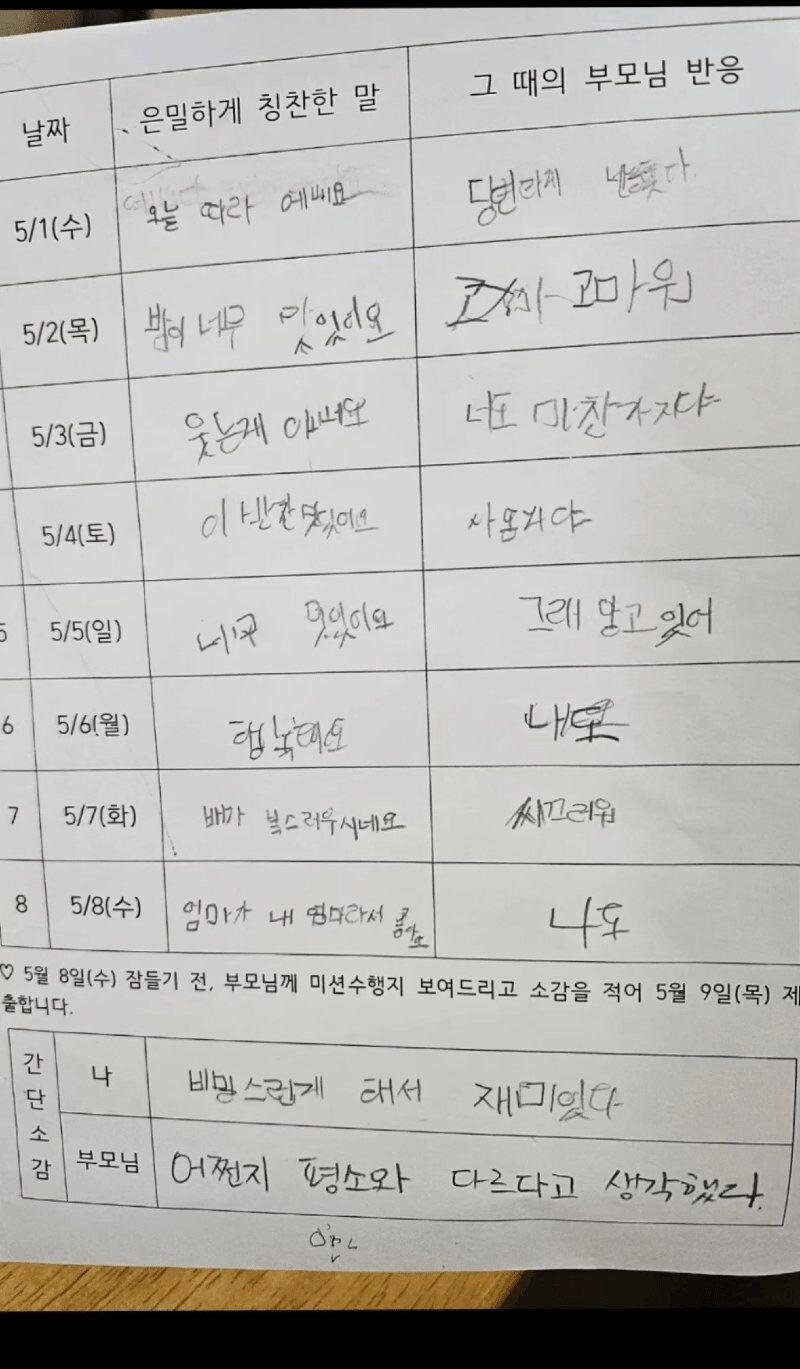 날짜 은밀하게 칭찬한 말 그 때의 부모님 반응
5/1(수) 오늘 따라 예뻐요
5/2(목) 밥이 너무 맛있어요 고마워
5/3(금) 웃는게 너도 마찬가지야
5/4(토) 이 반찬 맛있어요
5 5/5(일) 그래 알고 있어
6 5/6(월) 내도
7 5/7(화) 배가 복스러우시네요 씨끄러워
8 5/8(수) 엄마가 내 엄마라서 나도
♡ 5월 8일(수) 잠들기 전, 부모님께 미션수행지 보여드리고 소감을 적어 5월 9일(목) 제
출합니다.
간단소감
나 비밀스런게 태서 재미있다
부모님 어쩐지 평소와 다르다고 생각했다.